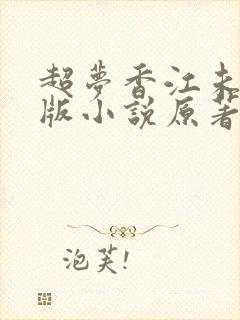 超夢香江未
版小說原著
泡芙!